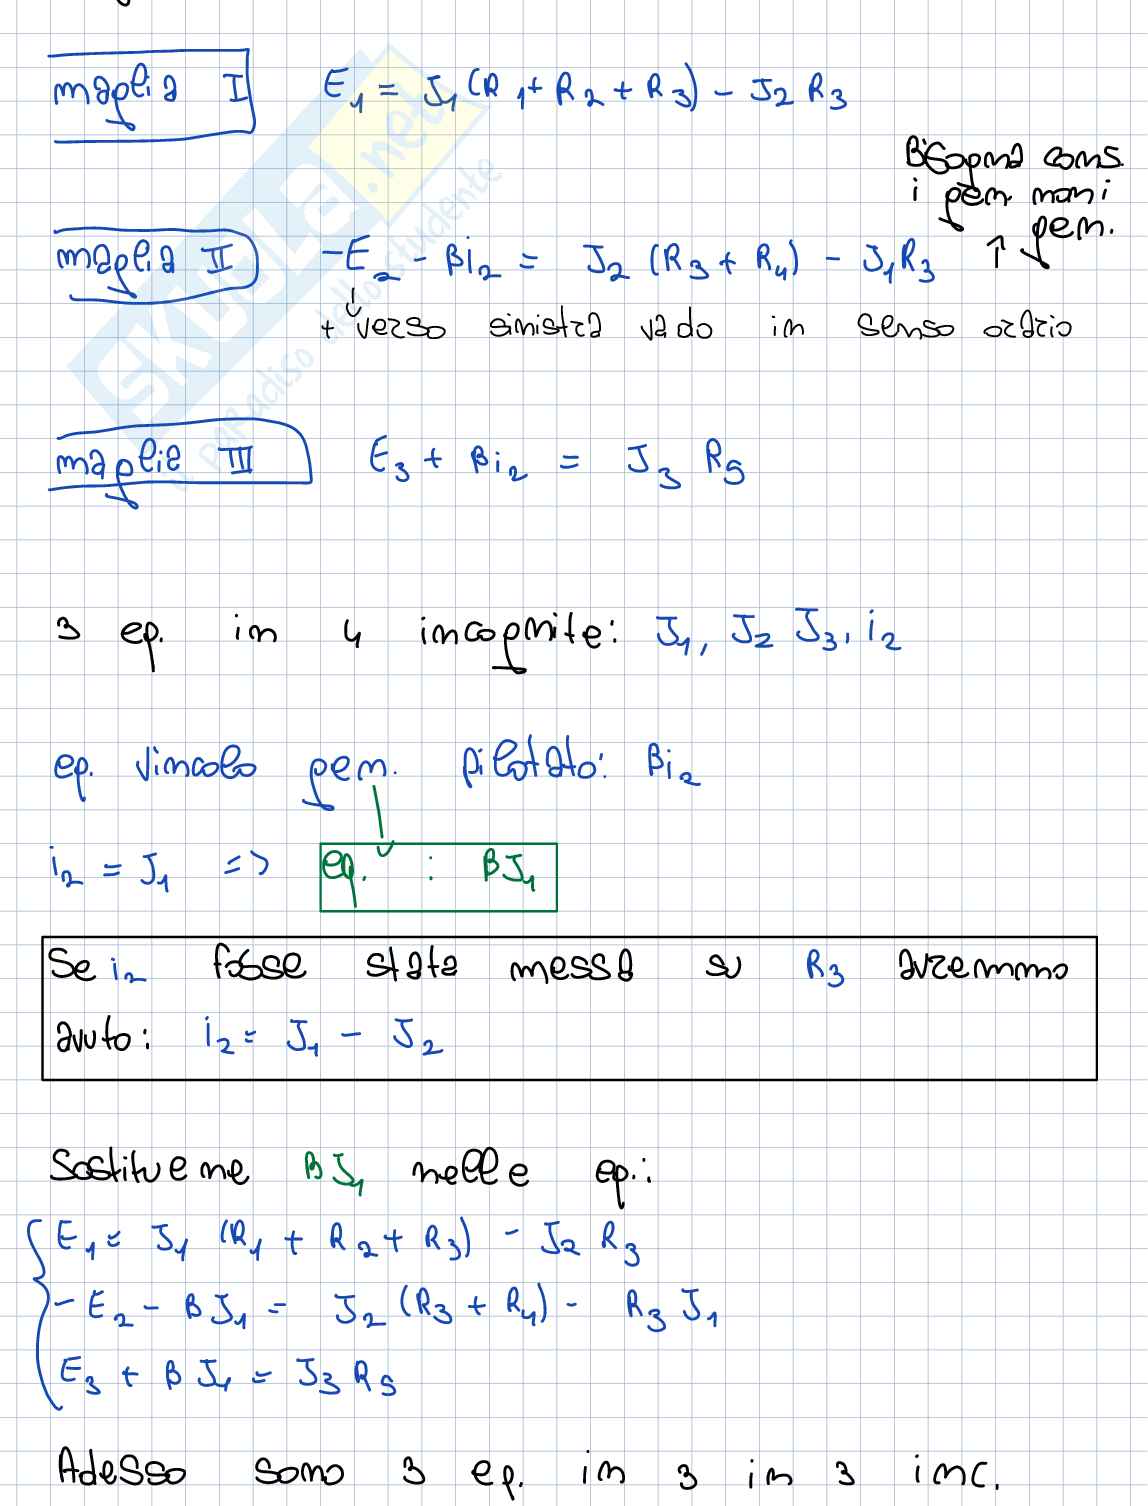 maglia I E₁ = J₁ (R₁ + R₂ + R₃) - J₂ R₃
Bisogna cons.
i gen non i
gen.
maglia II -E₂ - βi₂ = J₂ (R₃ + R₄) - J₁R₃ ↑
+ verso sinistra vado in senso orario
maglie III E₃ + βi₂ = J₃ R₅
3 eq. in 4 incognite: J₁, J₂ J₃, i₂
eq. vincolo gen. pilotato: βi₂
i₂ = J₁ => eq. : βJ₁
Se i₂ fosse stata messa su R₃ avremmo
avuto: i₂ = J₁ - J₂
Sostituene βJ₁ nelle eq.:
E₁ = J₁ (R₁ + R₂ + R₃) - J₂ R₃
-E₂ - βJ₁ = J₂ (R₃ + R₄) - R₃ J₁
E₃ + βJ₁ = J₃ R₅
Adesso sono 3 eq. in 3 in 3 inc.
SKUOLA.net
il paradiso dello studente